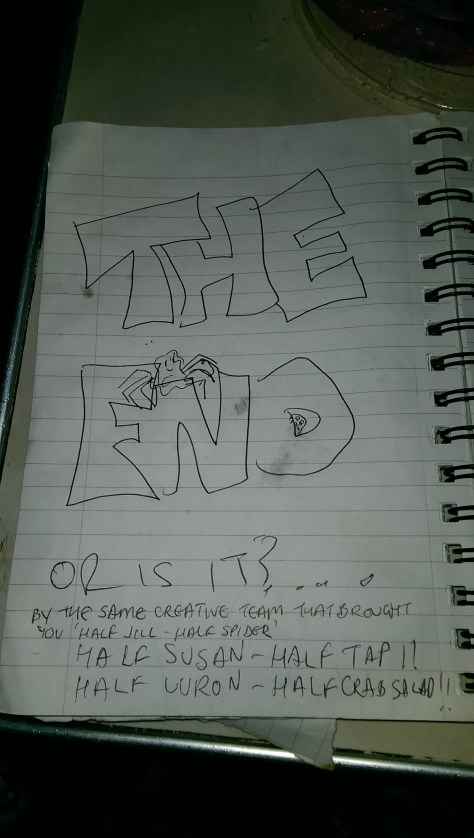 THE
END
OR IS IT?....
BY THE SAME CREATIVE TEAM THAT BROUGHT
YOU 'HALF JILL - HALF SPIDER'
HALF SUSAN - HALF TAP!!
HALF - HALF CRAB SALAD!!